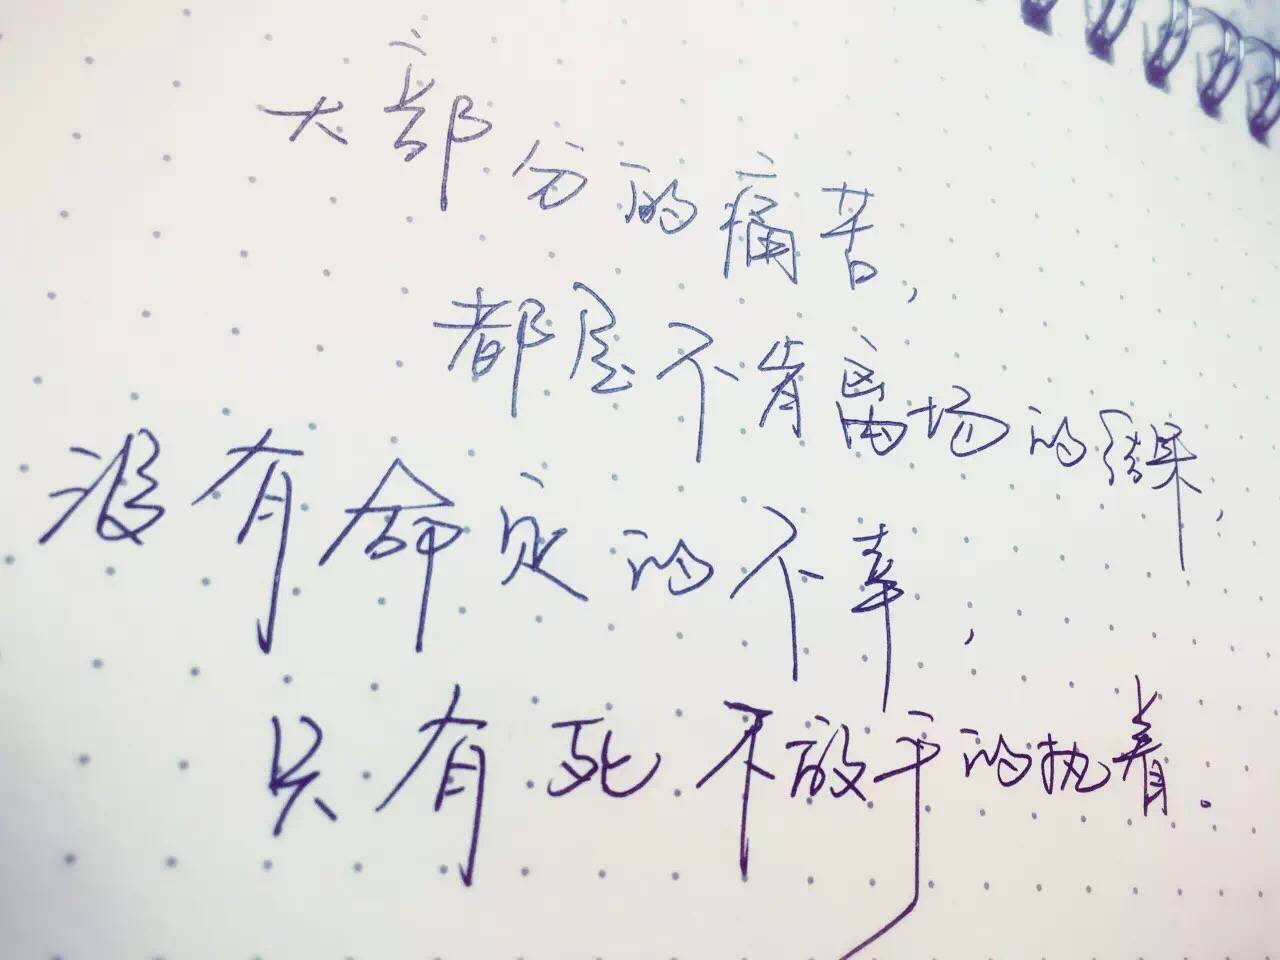 大部分的痛苦,
都是不肯离场的结果,
没有命定的不幸,
只有死不放手的执着。